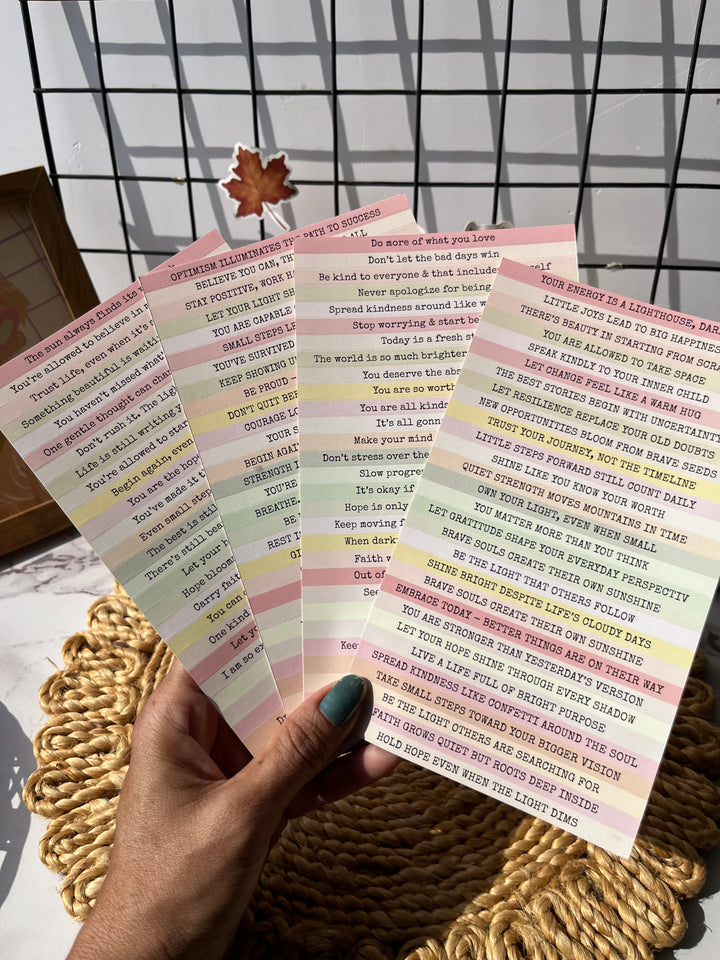 The sun always finds its
You're allowed to believe in
Trust life, even when it's
Something beautiful is waiti
You haven't missed what
One gentle thought can cha
Don't rush it. The lig
Life is still writing y
You're allowed to star
Begin again, even
You are the hop
You've made it t
Even small step
The best is still
There's still bea
Let your h
Hope bloom
Carry fait
You can
One kind
Let yo
I am so ex
OPTIMISM ILLUMINATES THE PATH TO SUCCESS
BELIEVE YOU CAN, TH ALL
STAY POSITIVE, WORK HA
LET YOUR LIGHT SH
YOU ARE CAPABLE
SMALL STEPS LE
YOU'VE SURVIVED
KEEP SHOWING U
BE PROUD –
DON'T QUIT BEF
COURAGE LO
YOUR S
BEGIN AGA
STRENGTH I
YOU'RE
BREATHE.
BE
REST I
GI
Do more of what you love
Don't let the bad days win
Be kind to everyone & that includes yourself
Never apologize for being
Spread kindness around like
Stop worrying & start be
Today is a fresh s
The world is so much brighter
You deserve the abs
You are so worth
You are all kinds
It's all gonn
Make your mind
Don't stress over the
Slow progre
It's okay if
Hope is only
Keep moving f
When dark
Faith
Out of
See
Keep
YOUR ENERGY IS A LIGHTHOUSE, DAR
LITTLE JOYS LEAD TO BIG HAPPINES
THERE'S BEAUTY IN STARTING FROM SCRA
YOU ARE ALLOWED TO TAKE SPACE
SPEAK KINDLY TO YOUR INNER CHILD
LET CHANGE FEEL LIKE A WARM HUG
THE BEST STORIES BEGIN WITH UNCERTAINTY
LET RESILIENCE REPLACE YOUR OLD DOUBTS
NEW OPPORTUNITIES BLOOM FROM BRAVE SEEDS
TRUST YOUR JOURNEY, NOT THE TIMELINE
LITTLE STEPS FORWARD STILL COUNT DAILY
SHINE LIKE YOU KNOW YOUR WORTH
QUIET STRENGTH MOVES MOUNTAINS IN TIME
OWN YOUR LIGHT, EVEN WHEN SMALL
YOU MATTER MORE THAN YOU THINK
LET GRATITUDE SHAPE YOUR EVERYDAY PERSPECTIV
BRAVE SOULS CREATE THEIR OWN SUNSHINE
BE THE LIGHT THAT OTHERS FOLLOW
SHINE BRIGHT DESPITE LIFE'S CLOUDY DAYS
BRAVE SOULS CREATE THEIR OWN SUNSHINE
EMBRACE TODAY – BETTER THINGS ARE ON THEIR WAY
YOU ARE STRONGER THAN YESTERDAY'S VERSION
LET YOUR HOPE SHINE THROUGH EVERY SHADOW
LIVE A LIFE FULL OF BRIGHT PURPOSE
SPREAD KINDNESS LIKE CONFETTI AROUND THE SOUL
TAKE SMALL STEPS TOWARD YOUR BIGGER VISION
BE THE LIGHT OTHERS ARE SEARCHING FOR
FAITH GROWS QUIET BUT ROOTS DEEP INSIDE
HOLD HOPE EVEN WHEN THE LIGHT DIMS